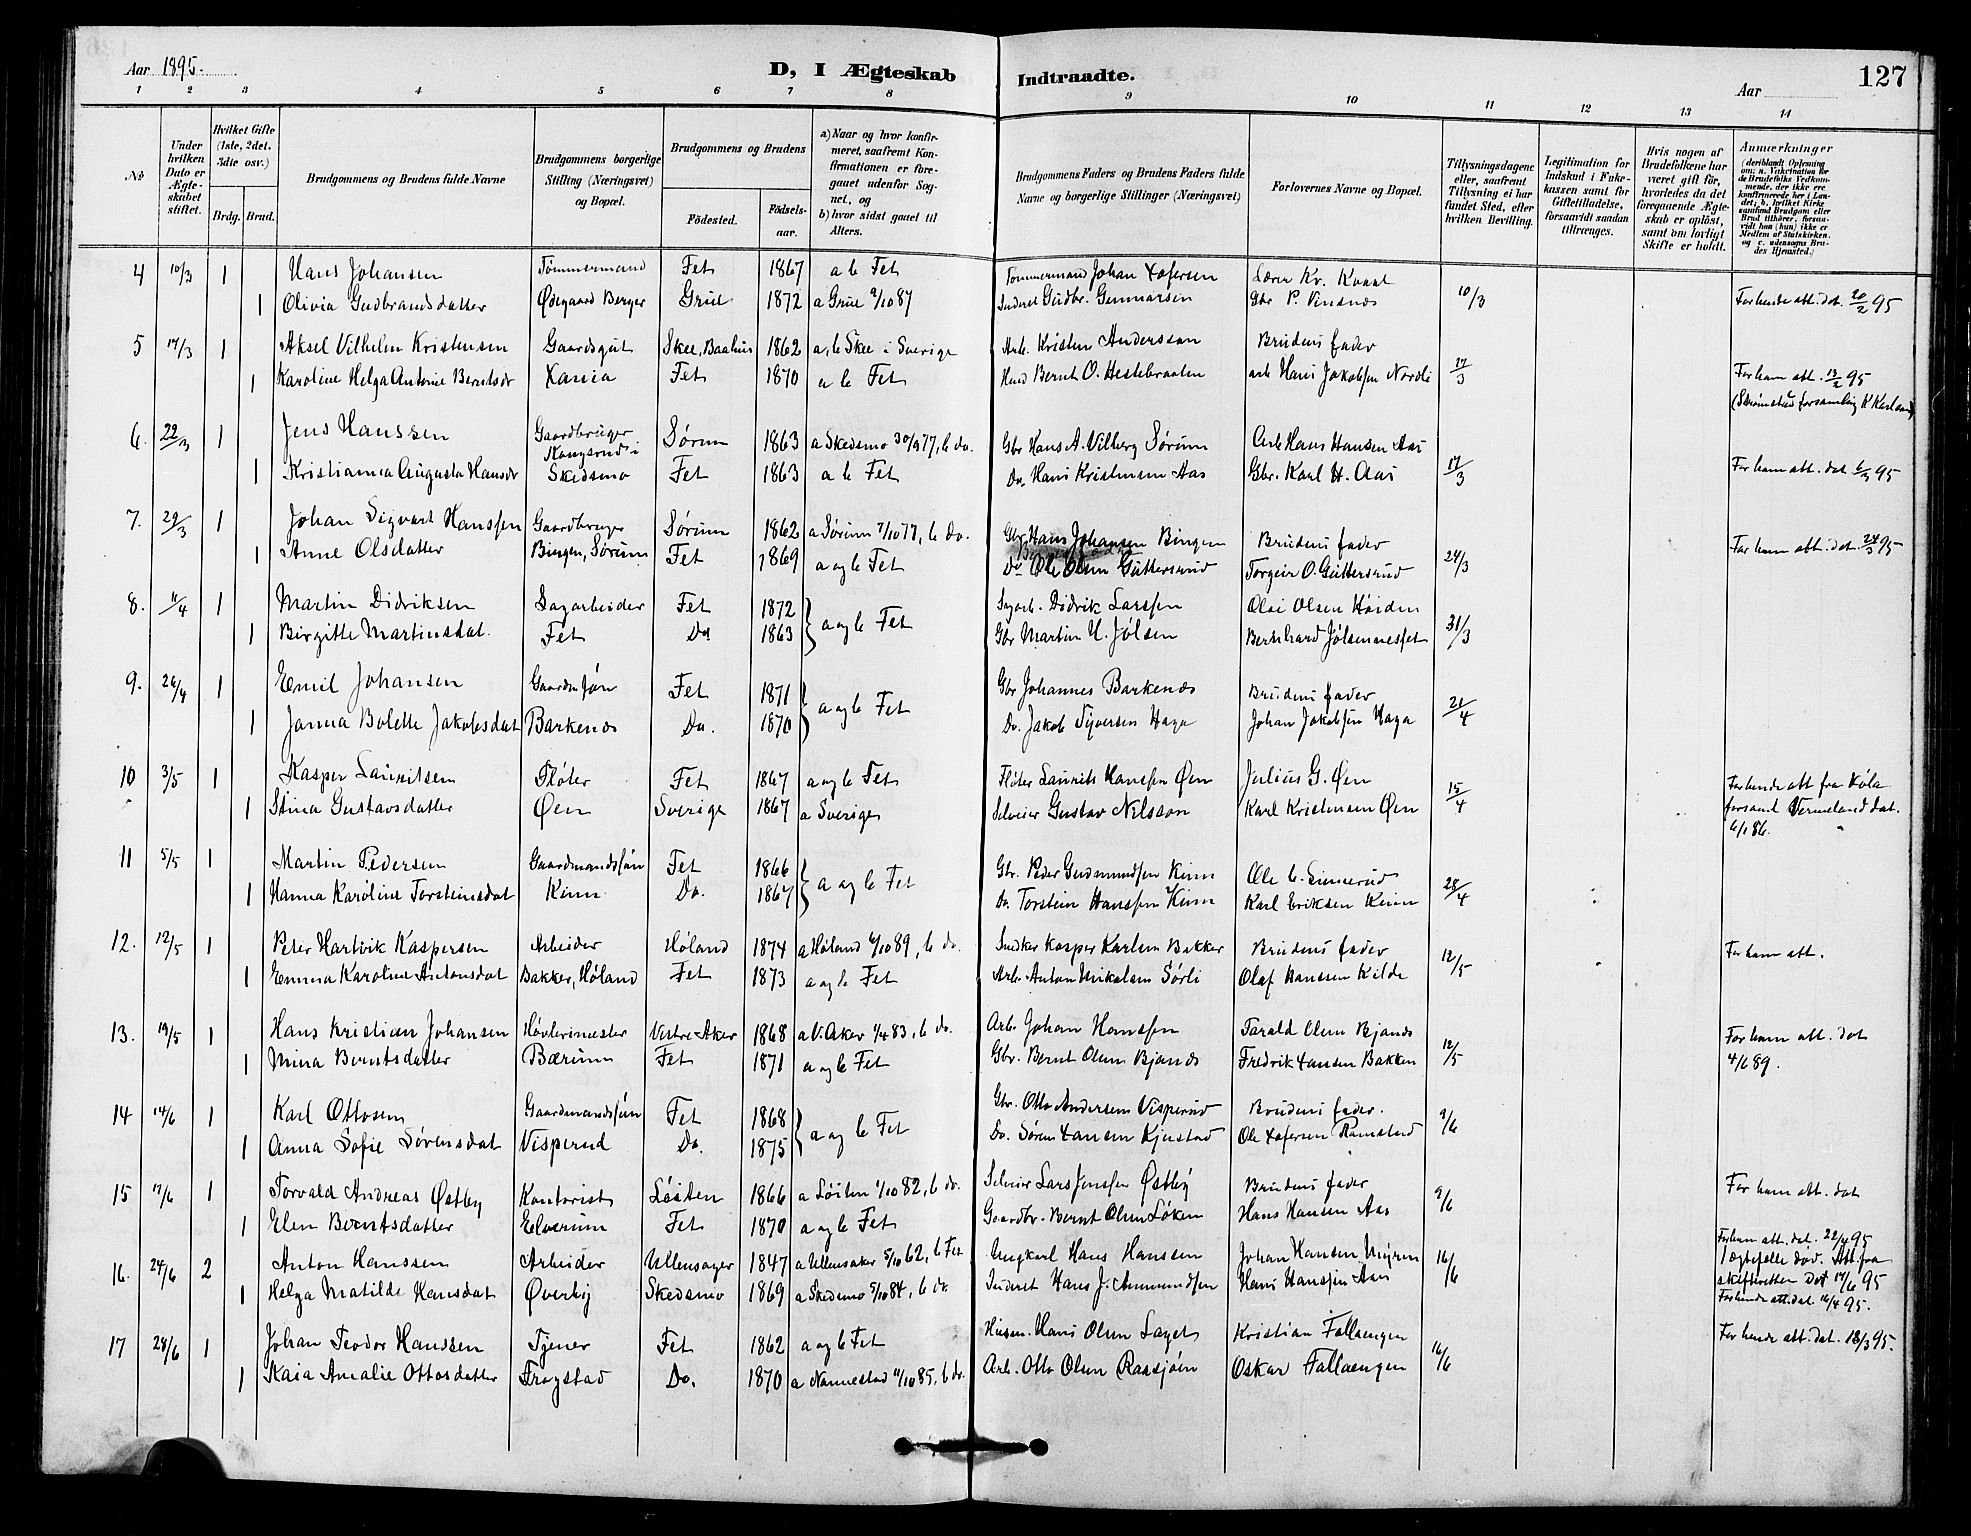 Aar 1895.
D, I Ægteskab Indtraadte.
Aar
127
1 2 3 4 5 6 7 8 9 10 11 12 13 14
No
Under hvilken Dato er Ægteskabet stiftet.
Hvilket Gifte (1ste, 2det, 3die osv.)
Brdg. Brud.
Brudgommens og Brudens fulde Navne
Brudgommens borgerlige Stilling (Næringsvei) og Bopæl.
Brudgommens og Brudens
Fødested. Fødselsaar.
a) Naar og hvor konfirmeret, saafremt Konfirmationen er foregaaet udenfor Sognet, og
b) hvor sidst gaaet til Alters.
Brudgommens Faders og Brudens Faders fulde Navne og borgerlige Stillinger (Næringsvei)
Forlovernes Navne og Bopæl.
Tillysningsdagene eller, saafremt Tillysning ei har fundet Sted, efter hvilken Bevilling.
Legitimation for Indskud i Enkekassen samt for Giftetilladelse, forsaavidt saadan tiltrænges.
Hvis nogen af Brudefolkene har været gift før, hvorledes da det foregaaende Ægteskab er opløst, samt om lovligt Skifte er holdt.
Anmærkninger
4 10/3 1 Hans Johansen Tømmermand Fet 1867 a b Fet Tømmermand Johan Xofersen Lærer Kr. Kvaal
1 Olivia Gudbrandsdatter Ødegaard Berger Grue 1872 a Grue 2/10 87 Inderst Gudbr. Gunnarsen Gbr P. Vindnæs 10/3 For hende att. dat. 20/2 95
5 17/3 1 Aksel Vilhelm Kristensen Gaardsgut Skee, Baahus 1862 a, b Skee i Sverige Arb. Kristen Andersson Brudens fader
1 Karoline Helga Antonie Berntsdr Xania Fet 1870 a b Fet Husd Bernt O. Hestebraaten arb Hans Jakobsen Nordli 27/3 For ham att. 13/2 95
6. 22/3 1 Jens Hanssen Gaardbruger Kongsrud i Sørum 1863 a Skedsmo 30/9 77, b do. Gbr Hans A. Vilberg Sørum Arb Hans Hansen Aas
1 Kristianna Augusta Hansdr Skedsmo Fet 1863 a b Fet Do. Hans Kristensen Aas Gbr. Karl H. Aas 17/3 For ham att. dat 6/3 95
7. 29/3 1 Johan Sigvart Hanssen Gaardbruger Sørum 1862 a Sørum 7/10 77, b do. Gbr Hans Johansen Bingen Brudens fader
1 Anne Olsdatter Bingen, Sørum Fet 1869 a og b Fet Do Ole Olsen Guttersrud Torgeir O. Guttersrud 24/3 For ham att. dat. 24/3 95
8. 11/4 1 Martin Didriksen Sagarbeider Fet 1872 a og b Fet Sagarb. Didrik Larssen Olai Olsen Høiden
1 Birgitte Martinsdat. Fet Do 1863 Gbr Martin U. Jølsen Bernhard Jølsennesset 31/3
9. 26/4 1 Emil Johansen Gaardm søn Fet 1871 a og b Fet Gbr Johannes Barkenæs Brudens fader
1 Janna Bolette Jakobsdat Barkenæs Do. 1870 Do. Jakob Syversen Haga Johan Jakobsen Haga 21/4
10 3/5 1 Kasper Lauritsen Fløter Fet 1867 a og b Fet Fløter Laurits Hanssen Øen Julius G. Øen
1 Stina Gustavsdatter Øen Sverige 1867 a Sverige Selveier Gustav Nilsson Karl Kristensen Øen 15/4 For hende att fra Køla forsaml Vermeland dat. 6/1 86.
11 5/5 1 Martin Pedersen Gaardmandssøn Fet 1866 a og b Fet Gbr. Peder Gudmundsen Kinn Ole C. Linnerud
1 Hanna Karoline Torsteinsdat Kinn Do. 1867 Do. Torstein Hanssen Kinn Karl Eriksen Kinn 28/4
12. 12/5 1 Peter Hartvik Kaspersen Arbeider Høland 1874 a Høland 6/10 89, b do. Indker Kasper Karlsen Bakker Brudens fader
1 Emma Karoline Antonsdat Bakker, Høland Fet 1873 a og b Fet Arb. Anton Nikolaisen Sørli Olaf Hansen Kilde 12/5 For ham att.
13. 19/5 1 Hans Kristian Johansen Høvlerimester Vestre Aker 1868 a V. Aker 1/4 83, b do. Arb. Johan Hanssen Tarald Olsen Bjanes
1 Mina Berntsdatter Bærum Fet 1871 a og b Fet Gbr. Bernt Olsen Bjanes Fredrik Hansen Bakken 12/5 For ham att. dat 4/6 89.
14 14/6 1 Karl Ottosen Gaardmandssøn Fet 1868 a og b Fet Gbr. Otto Andersen Visperud Brudens fader.
1 Anna Sofie Sørensdat Visperud Do. 1875 Do. Søren Hansen Kjustad Ole Xofersen Ramstad 9/6
15 17/6 1 Torvald Andreas Østby Kontorist Løiten 1866 a Løiten 1/10 82, b do. Selveier Lars Jenssen Østby Brudens fader
1 Elen Berntsdatter Elverum Fet 1870 a og b Fet Gaardbr. Bernt Olsen Løken Hans Hansen Aas 9/6 For ham att. dat
16. 24/6 2 Anton Hanssen Arbeider Ullensager 1847 a Ullensaker 5/10 62, b Fet Ungkarl Hans Hanssen Johan Hansen Nygren 16/6 For ham att. dat. 22/4 95
1 Helga Matilde Hansdat Øverby Skedsmo 1869 a Skedsmo 5/10 84, b do Inderst Hans J. Ammundsen Hans Hanssen Aas 1 ægtefælle død. Att fra skifteretten dat 17/6 95
For hende att. dat. 16/4 95.
17 28/6 1 Johan Teodor Hanssen Tjener Fet 1862 a og b Fet Husm. Hans Olsen Laget Kristian Fallaengen
1 Kaia Amalie Ottosdatter Frogstad Do. 1870 a Nannestad 11/10 85, b do. Arb. Otto Olsen Raasjøen Oskar Fallaengen 16/6 For hende att. dat. 18/3 95.